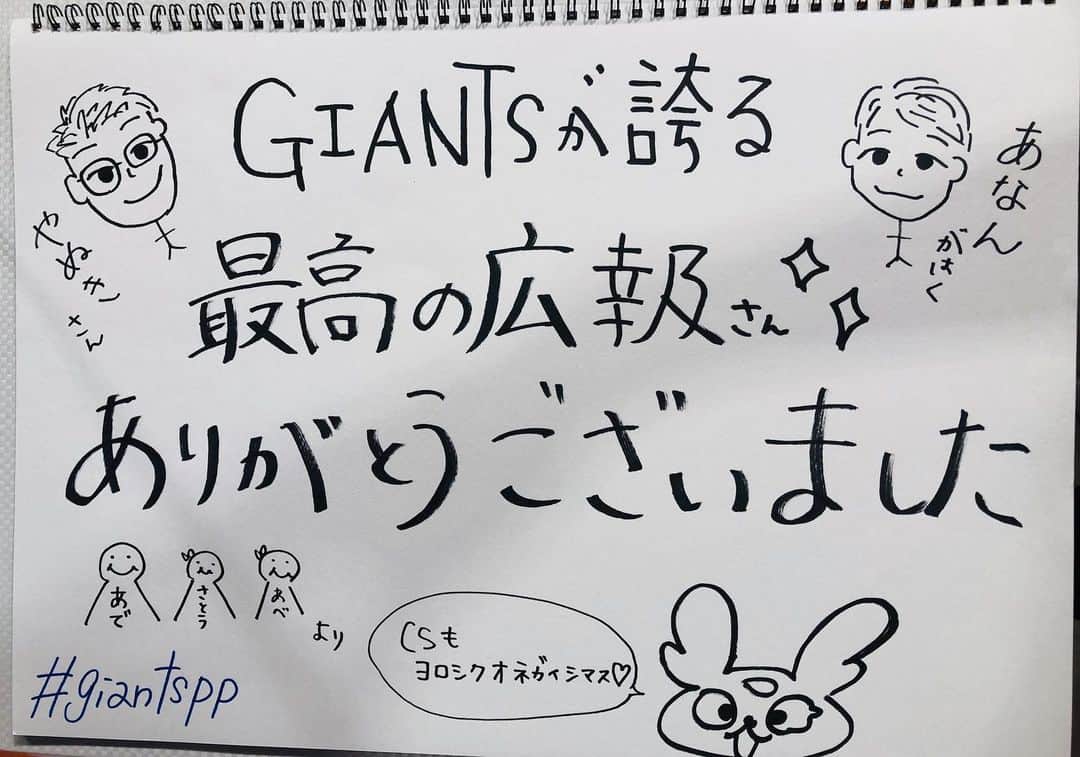 GIANTSが誇る
最高の広報さん
ありがとうございました
やぬきさん
あなんがはく
あで
さとう
あべ
より
CSも
ヨロシクオネガイシマス♡
#giantspp